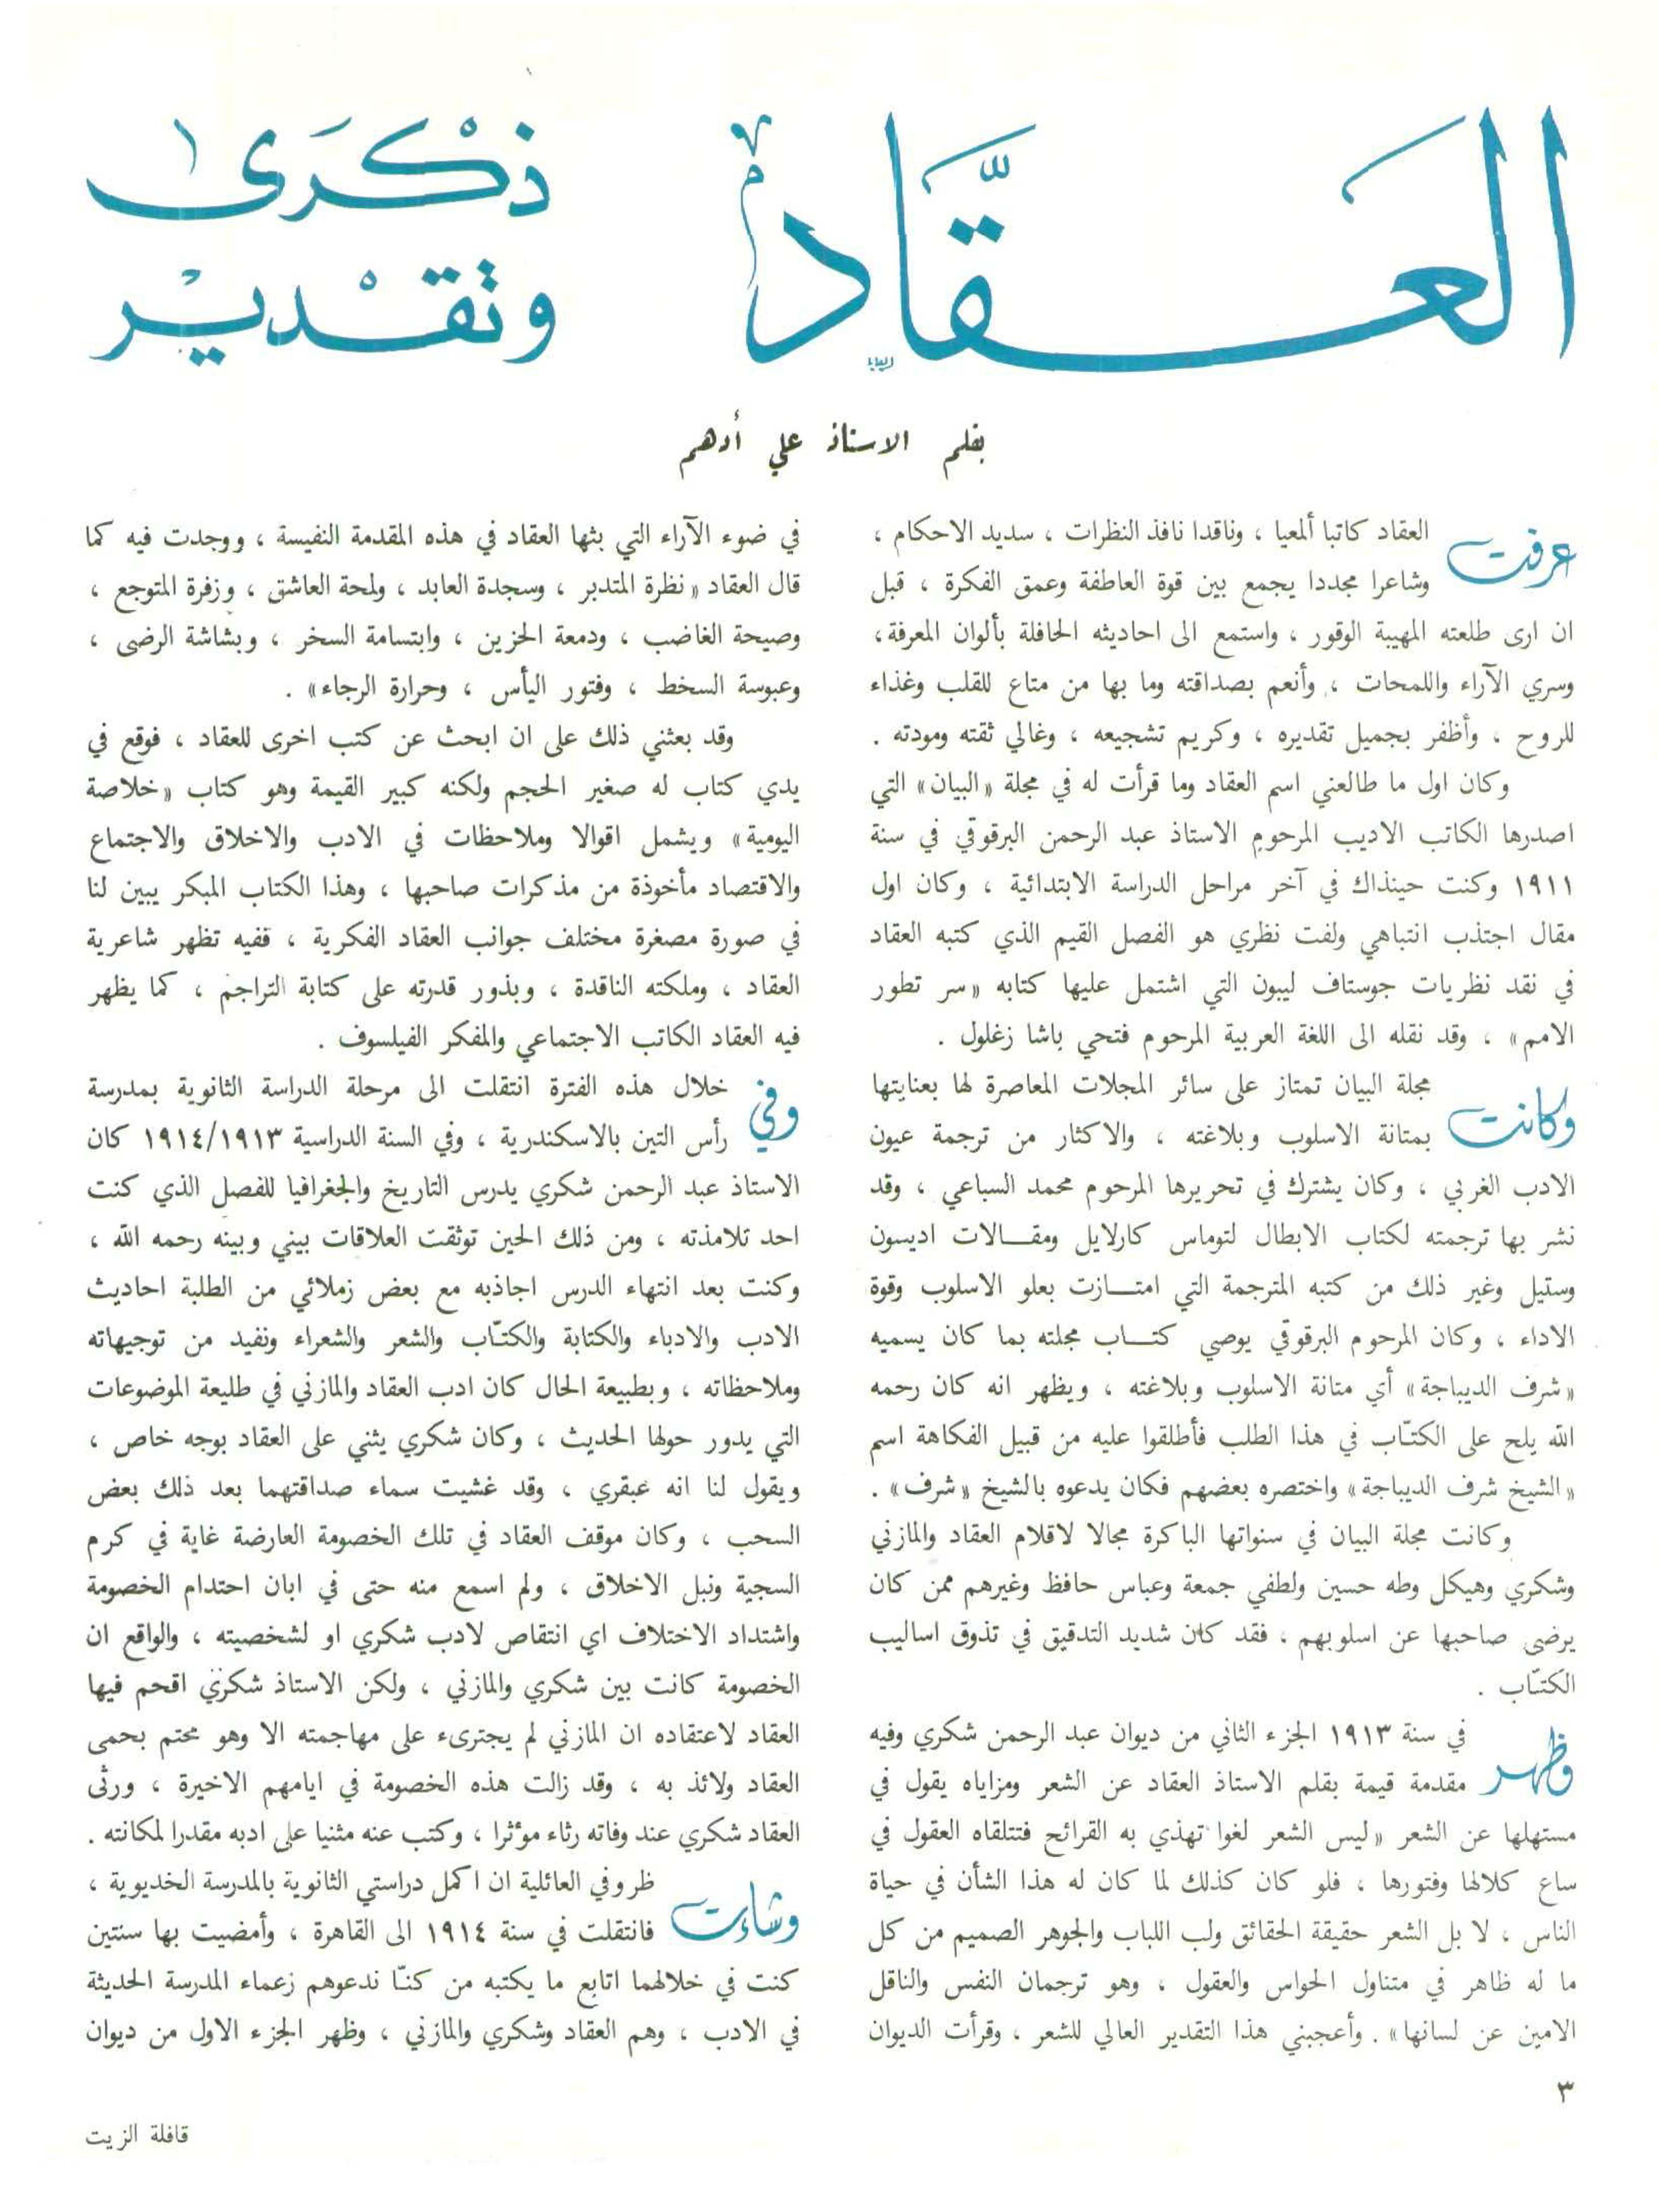 العقَّاد
ذكرى
وتقدير
بقلم الاستاذ علي أدهم
عرفت العقاد كاتبا ألمعيا ، وناقدا نافذ النظرات ، سديد الاحكام ،
وشاعرا مجددا يجمع بين قوة العاطفة وعمق الفكرة ، قبل
ان ارى طلعته المهيبة الوقور ، واستمع الى احاديثه الحافلة بألوان المعرفة ،
وسري الآراء واللمحات ، وأنعم بصداقته وما بها من متاع للقلب وغذاء
للروح ، وأظفر بجميل تقديره ، وكريم تشجيعه ، وغالي ثقته ومودته .
وكان اول ما طالعني اسم العقاد وما قرأت له في مجلة «البيان» التي
اصدرها الكاتب الاديب المرحوم الاستاذ عبد الرحمن البرقوقي في سنة
١٩١١ وكنت حينذاك في آخر مراحل الدراسة الابتدائية ، وكان اول
مقال اجتذب انتباهي ولفت نظري هو الفصل القيم الذي كتبه العقاد
في نقد نظريات جوستاف ليبون التي اشتمل عليها كتابه «سر تطور
الامم» ، وقد نقله الى اللغة العربية المرحوم فتحي باشا زغلول .
وكانت مجلة البيان تمتاز على سائر المجلات المعاصرة لها بعنايتها
بمتانة الاسلوب وبلاغته ، والاكثار من ترجمة عيون
الادب الغربي ، وكان يشترك في تحريرها المرحوم محمد السباعي ، وقد
نشر بها ترجمته لكتاب الابطال لتوماس كارلايل ومقالات اديسون
وستيل وغير ذلك من كتبه المترجمة التي امتازت بعلو الاسلوب وقوة
الاداء ، وكان المرحوم البرقوقي يوصي كتاب مجلته بما كان يسميه
«شرف الديباجة» أي متانة الاسلوب وبلاغته ، ويظهر انه كان رحمه
الله يلح على الكتّاب في هذا الطلب فأطلقوا عليه من قبيل الفكاهة اسم
«الشيخ شرف الديباجة» واختصره بعضهم فكان يدعوه بالشيخ «شرف» .
وكانت مجلة البيان في سنواتها الباكرة مجالا لاقلام العقاد والمازني
وشكري وهيكل وطه حسين ولطفي جمعة وعباس حافظ وغيرهم ممن كان
يرضى صاحبها عن اسلوبهم ، فقد كان شديد التدقيق في تذوق اساليب
الكتّاب .
وظهر في سنة ١٩١٣ الجزء الثاني من ديوان عبد الرحمن شكري وفيه
مقدمة قيمة بقلم الاستاذ العقاد عن الشعر ومزاياه يقول في
مستهلها عن الشعر «ليس الشعر لغوا تهذي به القرائح فتتلقاه العقول في
ساع كلالها وفتورها ، فلو كان كذلك لما كان له هذا الشأن في حياة
الناس ، لا بل الشعر حقيقة الحقائق ولب اللباب والجوهر الصميم من كل
ما له ظاهر في متناول الحواس والعقول ، وهو ترجمان النفس والناقل
الامين عن لسانها» . وأعجبني هذا التقدير العالي للشعر ، وقرأت الديوان
في ضوء الآراء التي بثها العقاد في هذه المقدمة النفيسة ، ووجدت فيه كما
قال العقاد «نظرة المتدبر ، وسجدة العابد ، ولمحة العاشق ، وزفرة المتوجع ،
وصيحة الغاضب ، ودمعة الحزين ، وابتسامة السخر ، وبشاشة الرضى ،
وعبوسة السخط ، وفتور اليأس ، وحرارة الرجاء» .
وقد بعثني ذلك على ان ابحث عن كتب اخرى للعقاد ، فوقع في
يدي كتاب له صغير الحجم ولكنه كبير القيمة وهو كتاب «خلاصة
اليومية» ويشمل اقوالا وملاحظات في الادب والاخلاق والاجتماع
والاقتصاد مأخوذة من مذكرات صاحبها ، وهذا الكتاب المبكر يبين لنا
في صورة مصغرة مختلف جوانب العقاد الفكرية ، ففيه تظهر شاعرية
العقاد ، وملكته الناقدة ، وبذور قدرته على كتابة التراجم ، كما يظهر
فيه العقاد الكاتب الاجتماعي والمفكر الفيلسوف .
وفي خلال هذه الفترة انتقلت الى مرحلة الدراسة الثانوية بمدرسة
رأس التين بالاسكندرية ، وفي السنة الدراسية ١٩١٤/١٩١٣ كان
الاستاذ عبد الرحمن شكري يدرس التاريخ والجغرافيا للفصل الذي كنت
احد تلامذته ، ومن ذلك الحين توثقت العلاقات بيني وبينه رحمه الله ،
وكنت بعد انتهاء الدرس اجاذبه مع بعض زملائي من الطلبة احاديث
الادب والادباء والكتابة والكتّاب والشعر والشعراء ونفيد من توجيهاته
وملاحظاته ، وبطبيعة الحال كان ادب العقاد والمازني في طليعة الموضوعات
التي يدور حولها الحديث ، وكان شكري يثني على العقاد بوجه خاص ،
ويقول لنا انه عبقري ، وقد غشيت سماء صداقتهما بعد ذلك بعض
السحب ، وكان موقف العقاد في تلك الخصومة العارضة غاية في كرم
السجية ونبل الاخلاق ، ولم اسمع منه حتى في ابان احتدام الخصومة
واشتداد الاختلاف اي انتقاص لادب شكري او لشخصيته ، والواقع ان
الخصومة كانت بين شكري والمازني ، ولكن الاستاذ شكري اقحم فيها
العقاد لاعتقاده ان المازني لم يجترىء على مهاجمته الا وهو محتم بحمى
العقاد ولائذ به ، وقد زالت هذه الخصومة في ايامهم الاخيرة ، ورثى
العقاد شكري عند وفاته رثاء موٴثرا ، وكتب عنه مثنيا على ادبه مقدرا لمكانته .
وشاءت ظروفي العائلية ان اكمل دراستي الثانوية بالمدرسة الخديوية ،
فانتقلت في سنة ١٩١٤ الى القاهرة ، وأمضيت بها سنتين
كنت في خلالهما اتابع ما يكتبه من كنّا ندعوهم زعماء المدرسة الحديثة
في الادب ، وهم العقاد وشكري والمازني ، وظهر الجزء الاول من ديوان
٣
قافلة الزيت